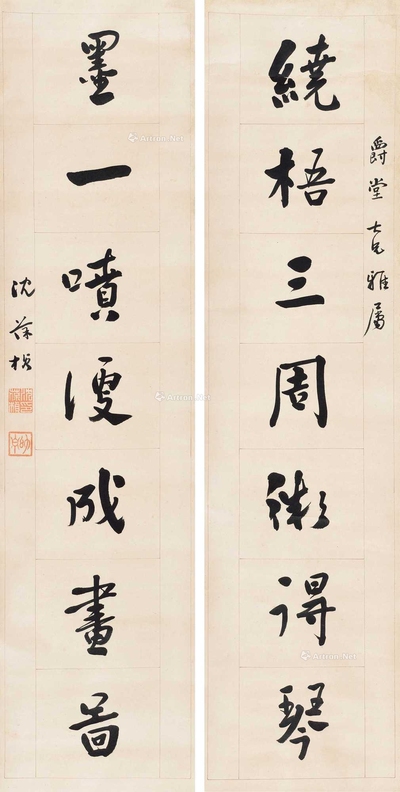 爵堂大兄雅屬
繞梧三周得琴
墨一噴便成畫圖
沈葆楨
幼丹
Artron.Net